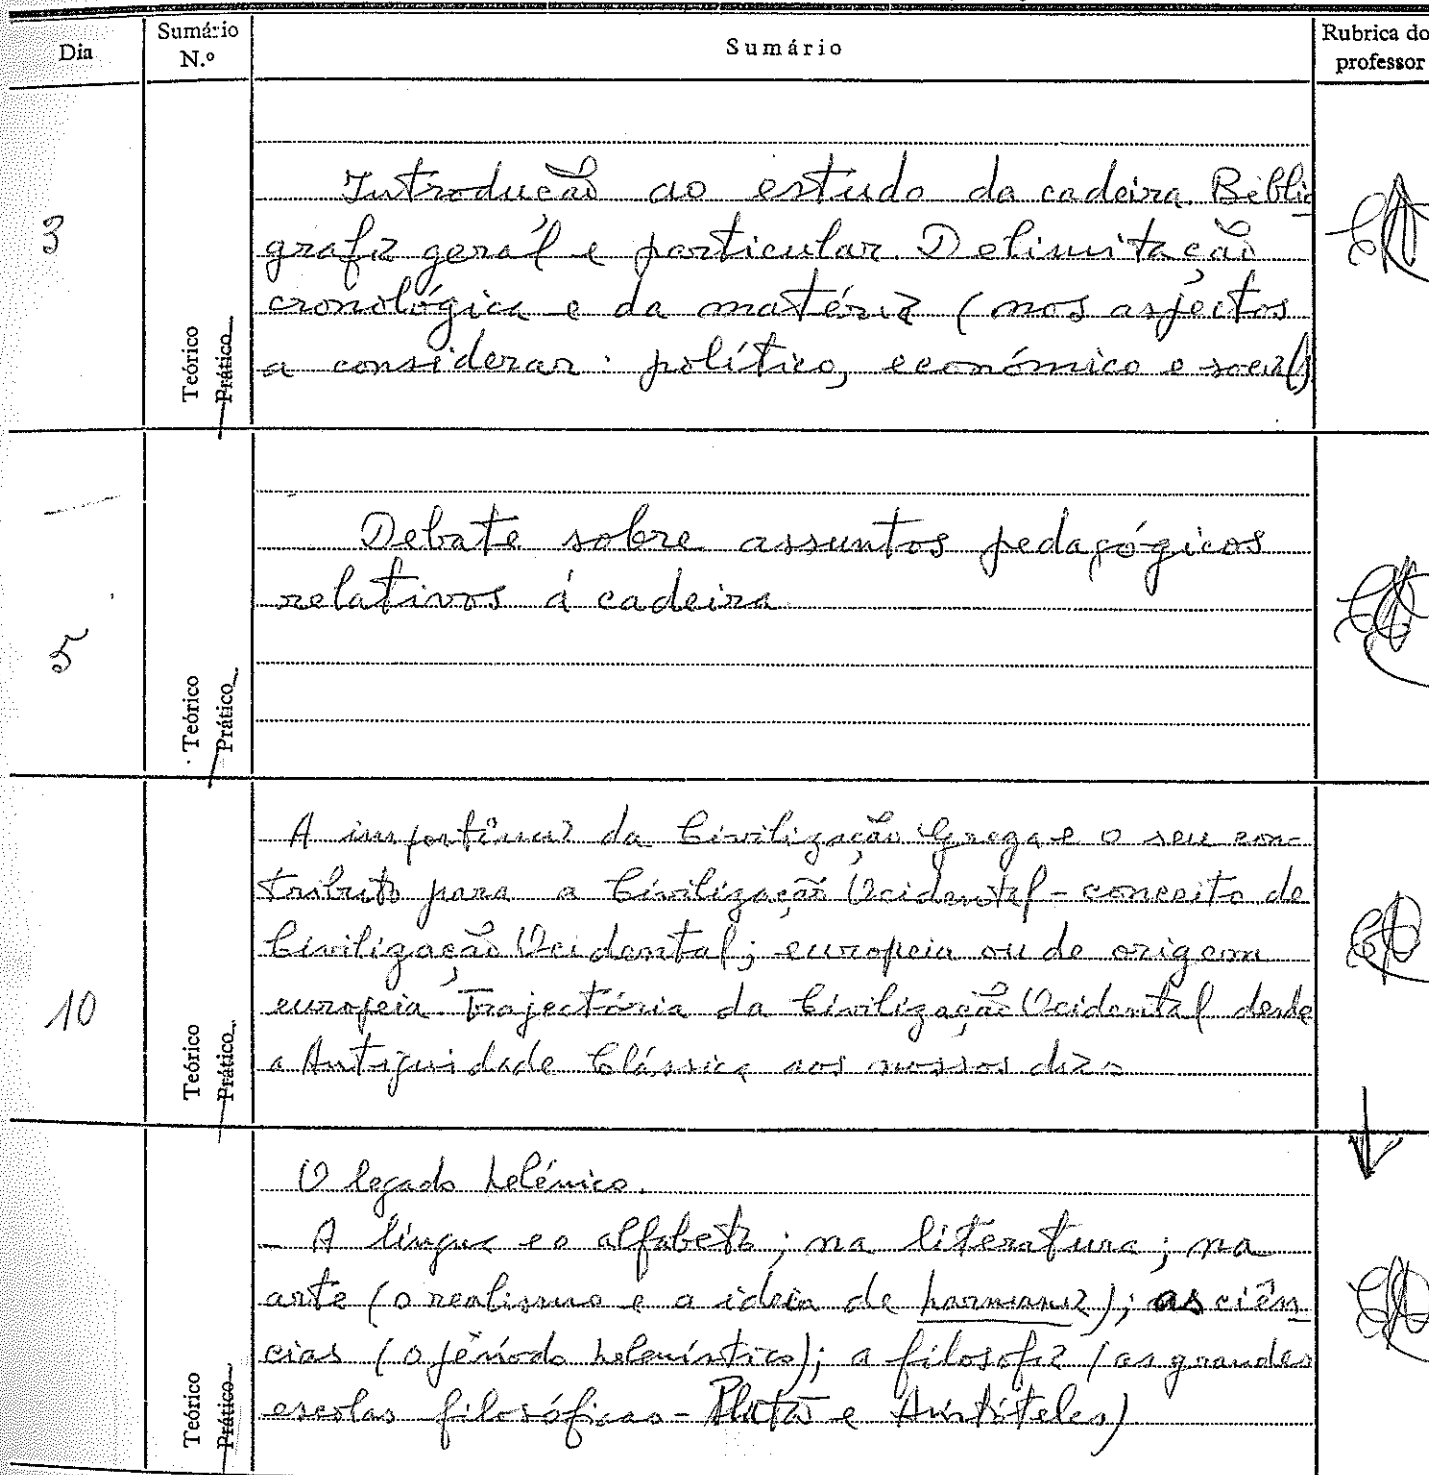 Dia
Sumário
N.º
Sumário
Rubrica do
professor
3
Teórico
Prático
Introdução ao estudo da cadeira. Biblio
grafia geral e particular. Delimitação
cronológica e da matéria (nos aspectos
a considerar: político, económico e social)
5
Teórico
Prático
Debate sobre assuntos pedagógicos
relativos á cadeira
10
Teórico
Prático
A importância da Civilização Grega e o seu con-
tributo para a Civilização Ocidental - conceito de
Civilização Ocidental; europeia ou de origem
europeia. Trajectória da Civilização Ocidental desde
a Antiguidade Clássica aos nossos dias
Teórico
Prático
O legado helénico.
- A língua e o alfabeto; na literatura; na
arte (o realismo e a ideia de harmonia); as ciên
cias (o período helenístico); a filosofia (as grandes
escolas filosóficas - Platão e Aristóteles)